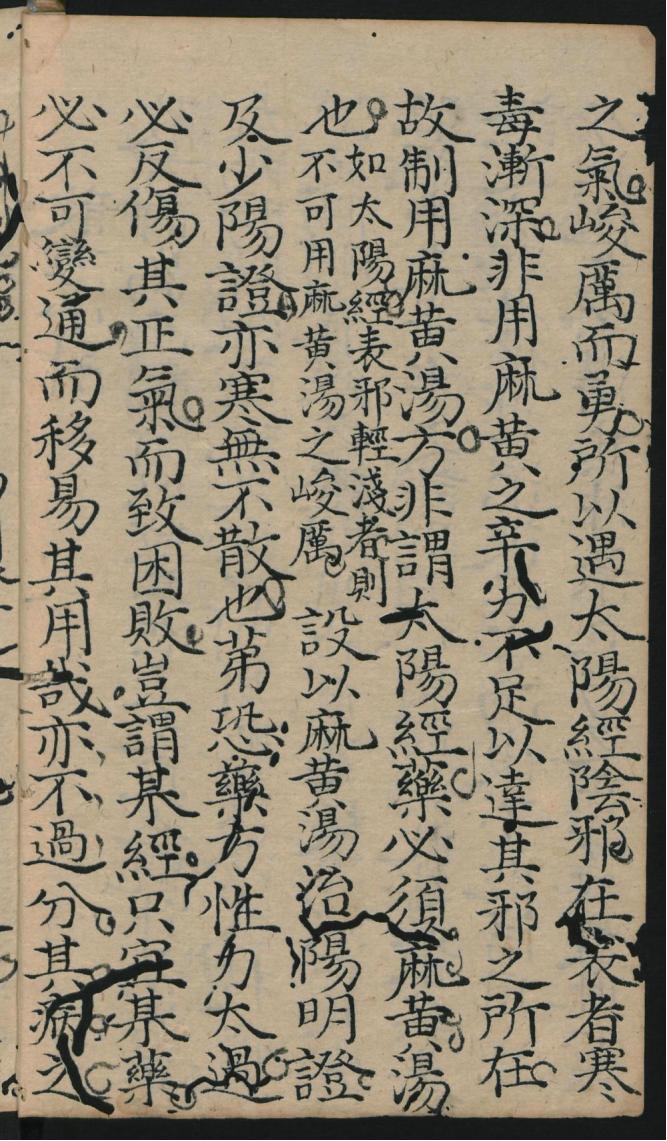 之氣峻厲而勇所以遇太陽經陰邪在表者寒
毒漸深非用麻黃之辛力不足以達其邪之所在
故制用麻黃湯方非謂太陽經藥必須麻黃湯
也如太陽經表邪輕淺者則
不可用麻黃湯之峻厲
設以麻黃湯治陽明證
及少陽證亦寒無不散也苐恐藥方性力太過
必反傷其正氣而致困敗豈謂某經只宜某藥
必不可變通而移易其用哉亦不過分其病之